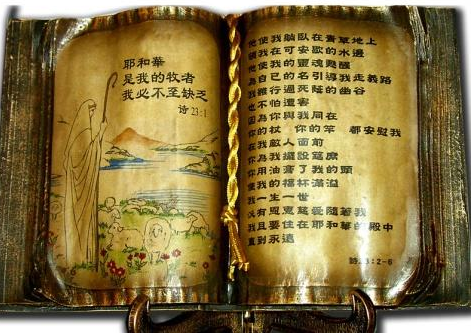 耶和華
是我的牧者
我必不至缺乏
诗 23:1
他使我躺臥在青草地上
領我在可安歇的水邊
他使我的靈魂甦醒
為自已的名引導我走義路
我雖行過死蔭的幽谷
也不怕遭害
因為你與我同在
你的杖 你的竿 都安慰我
在我敵人面前
你為我擺設筵席
你用油膏了我的頭
使我的福杯滿溢
我一生一世
必有恩惠慈愛隨著我
我且要住在耶和華的殿中
直到永遠
詩:23:2-6